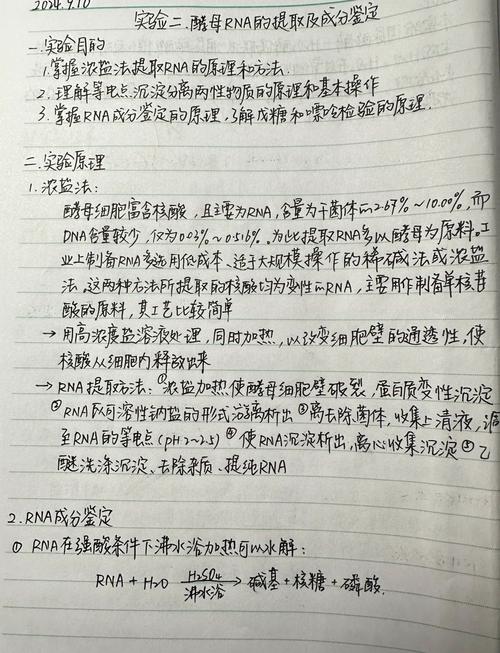 2024.9.10
实验二.酵母RNA的提取及成分鉴定
一.实验目的
1.掌握浓盐法提取RNA的原理和方法.
2.理解等电点沉淀分离两性物质的原理和基本操作
3.掌握RNA成分鉴定的原理,了解戊糖和嘌呤检验的原理.
二.实验原理
1.浓盐法:
酵母细胞富含核酸,且主要为RNA,含量为干菌体的2.67%~10.00%,而
DNA含量较少,仅为0.03%~0.516%.为此提取RNA多以酵母为原料.工
业上制备RNA多选用低成本、适于大规模操作的稀碱法或浓盐
法.这两种方法所提取的核酸均为变性的RNA,主要用作制备单核苷
酸的原料,其工艺比较简单
→用高浓度盐溶液处理,同时加热,以改变细胞壁的通透性,使
核酸从细胞内释放出来
→RNA提取方法:①浓盐加热使酵母细胞壁破裂,蛋白质变性沉淀
②RNA以可溶性钠盐的形式游离析出③离去除菌体,收集上清液,调
至RNA的等电点(pH2~2.5)④使RNA沉淀析出,离心收集沉淀⑤乙
醚洗涤沉淀、去除杂质、提纯RNA
2.RNA成分鉴定
①RNA在强酸条件下沸水浴加热可以水解:
RNA+H2O H2SO4 沸水浴→碱基+核糖+磷酸.